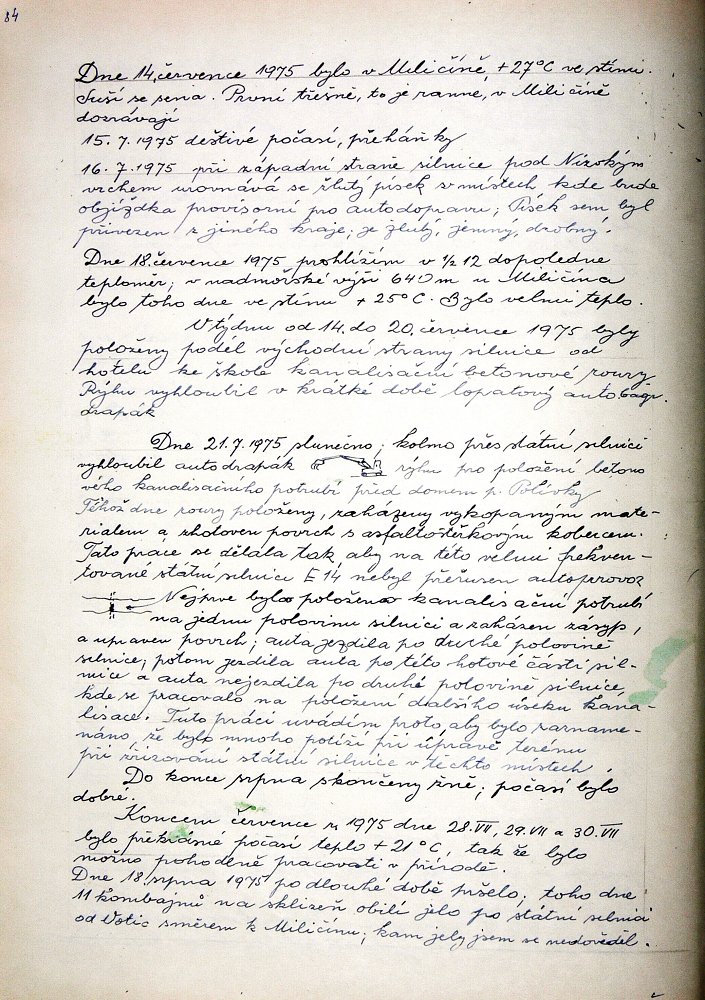 84
Dne 14. července 1975 bylo v Miličíně, +27°C ve stínu.
Suší se sena. První třešně, to je ranné, v Miličíně
dozrávají
15. 7. 1975 deštivé počasí, přeháňky
16. 7. 1975 při západní straně silnice pod Nízokým
vrchem urovnává se žlutý písek v místech kde bude
objížďka provisorní pro autodopravu; Písek sem byl
přivezen z jiného kraje; je žlutý, jemný, drobný.
Dne 18. července 1975 prohlížím v 1/2 12 dopoledne
teploměr; v nadmořské výši 640 m u Miličína
bylo toho dne ve stínu +25°C. Bylo velmi teplo.
V týdnu od 14. do 20. července 1975 byly
položeny podél východní strany silnice od
hotelu ke škole kanalisační betonové roury
Rýhu vyhloubil v krátké době lopatový autobagr.
drapák
Dne 21. 7. 1975 slunečno; kolmo přes státní silnici
vyhloubil autodrapák rýhu pro položení betono
vého kanalisačního potrubí před domem p. Polívky
Téhož dne roury položeny, zaházeny vykopaným mate-
rialem a zhotoven povrch s asfaltoštěrkovým kobercem.
Tato práce se dělala tak, aby na této velmi frekven-
tované státní silnici E 14 nebyl přerušen autoprovoz
Nejprve bylo položeno kanalisační potrubí
na jednu polovinu silnici a zaházen zásyp,
a upraven povrch; auta jezdila po druhé polovině
silnice; potom jezdila auta po této hotové části sil-
nice a auta nejezdila po druhé polovině silnice,
kde se pracovalo na položení dalšího úseku kana-
lisace. Tuto práci uvádím proto, aby bylo zazname-
náno, že bylo mnoho potíží při úpravě terénu
při zřizování státní silnice v těchto místech
Do konce srpna skončeny žně; počasí bylo
dobré.
Koncem července r. 1975 dne 28. VII, 29. VII a 30. VII
bylo překrásné počasí teplo +21°C, tak že bylo
možno pohodlně pracovati v přírodě.
Dne 18. srpna 1975 po dlouhé době pršelo; toho dne
11 kombajnů na sklizeň obilí jelo po státní silnici
od Votic směrem k Miličínu; kam jely jsem se nedověděl.